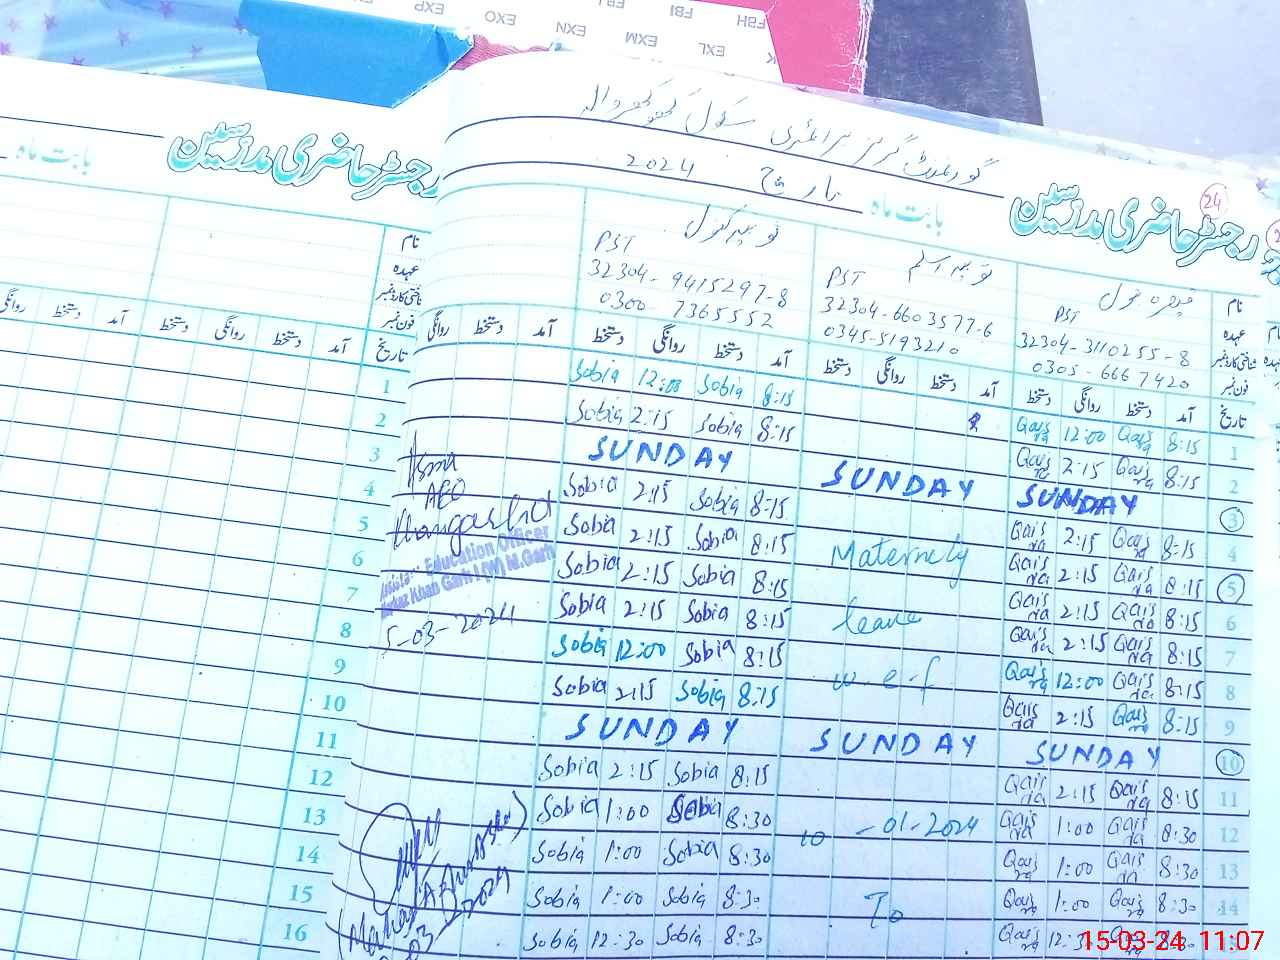 FBI
FBH
EXP
EXO
EXN
EXM
EXL
گورنمنٹ گرلز پرائمری سکول
2024
بابت ماہ
رجسٹر حاضری مدرسین
24
بابت ماہ
رجسٹر حاضری مدرسین
نام
عہدہ
شناختی کارڈ نمبر
فون نمبر
PST
32304-3110255-8
0305-6667420
PST
32304-6603577-6
0345-5193210
ثوبیہ کنول
PST
32304-9415297-8
0300-7365552
تاریخ آمد دستخط روانگی دستخط آمد دستخط روانگی دستخط آمد دستخط روانگی دستخط آمد دستخط روانگی
1 8:15 Qais ra 12:00 Qais ra 8:15 Sobia 12:00 Sobia
2 8:15 Qais ra 2:15 Qais ra 8:15 Sobia 2:15 Sobia
3 SUNDAY SUNDAY SUNDAY
4 8:15 Qais ra 2:15 Qais ra 8:15 Sobia 2:15 Sobia
5 8:15 Qais ra 2:15 Qais ra Maternely 8:15 Sobia 2:15 Sobia
6 8:15 Qais ra 2:15 Qais ra 8:15 Sobia 2:15 Sobia
7 8:15 Qais ra 2:15 Qais ra leave 8:15 Sobia 2:15 Sobia
8 8:15 Qais ra 12:00 Qais ra w.e.f 8:15 Sobia 12:00 Sobia
9 8:15 Qais ra 2:15 Qais ra 8:15 Sobia 2:15 Sobia
10 SUNDAY SUNDAY SUNDAY
11 8:15 Qais ra 2:15 Qais ra 8:15 Sobia 2:15 Sobia
12 8:30 Qais ra 1:00 Qais ra 10-01-2024 8:30 Sobia 1:00 Sobia
13 8:30 Qais ra 1:00 Qais ra 8:30 Sobia 1:00 Sobia
14 8:30 Qais ra 1:00 Qais ra To 8:30 Sobia 1:00 Sobia
Qais ra 8:30 Sobia 12:30 Sobia
Asma
AEO
Khangarha
Assistant Education Officer
Markaz Khan Garh I (W) M.Garh
5-03-2024
نام
عہدہ
شناختی کارڈ نمبر
فون نمبر
تاریخ آمد دستخط روانگی دستخط آمد دستخط روانگی
1
2
3
4
5
6
7
8
9
10
11
12
13
14
15
16
15-03-24 11:07